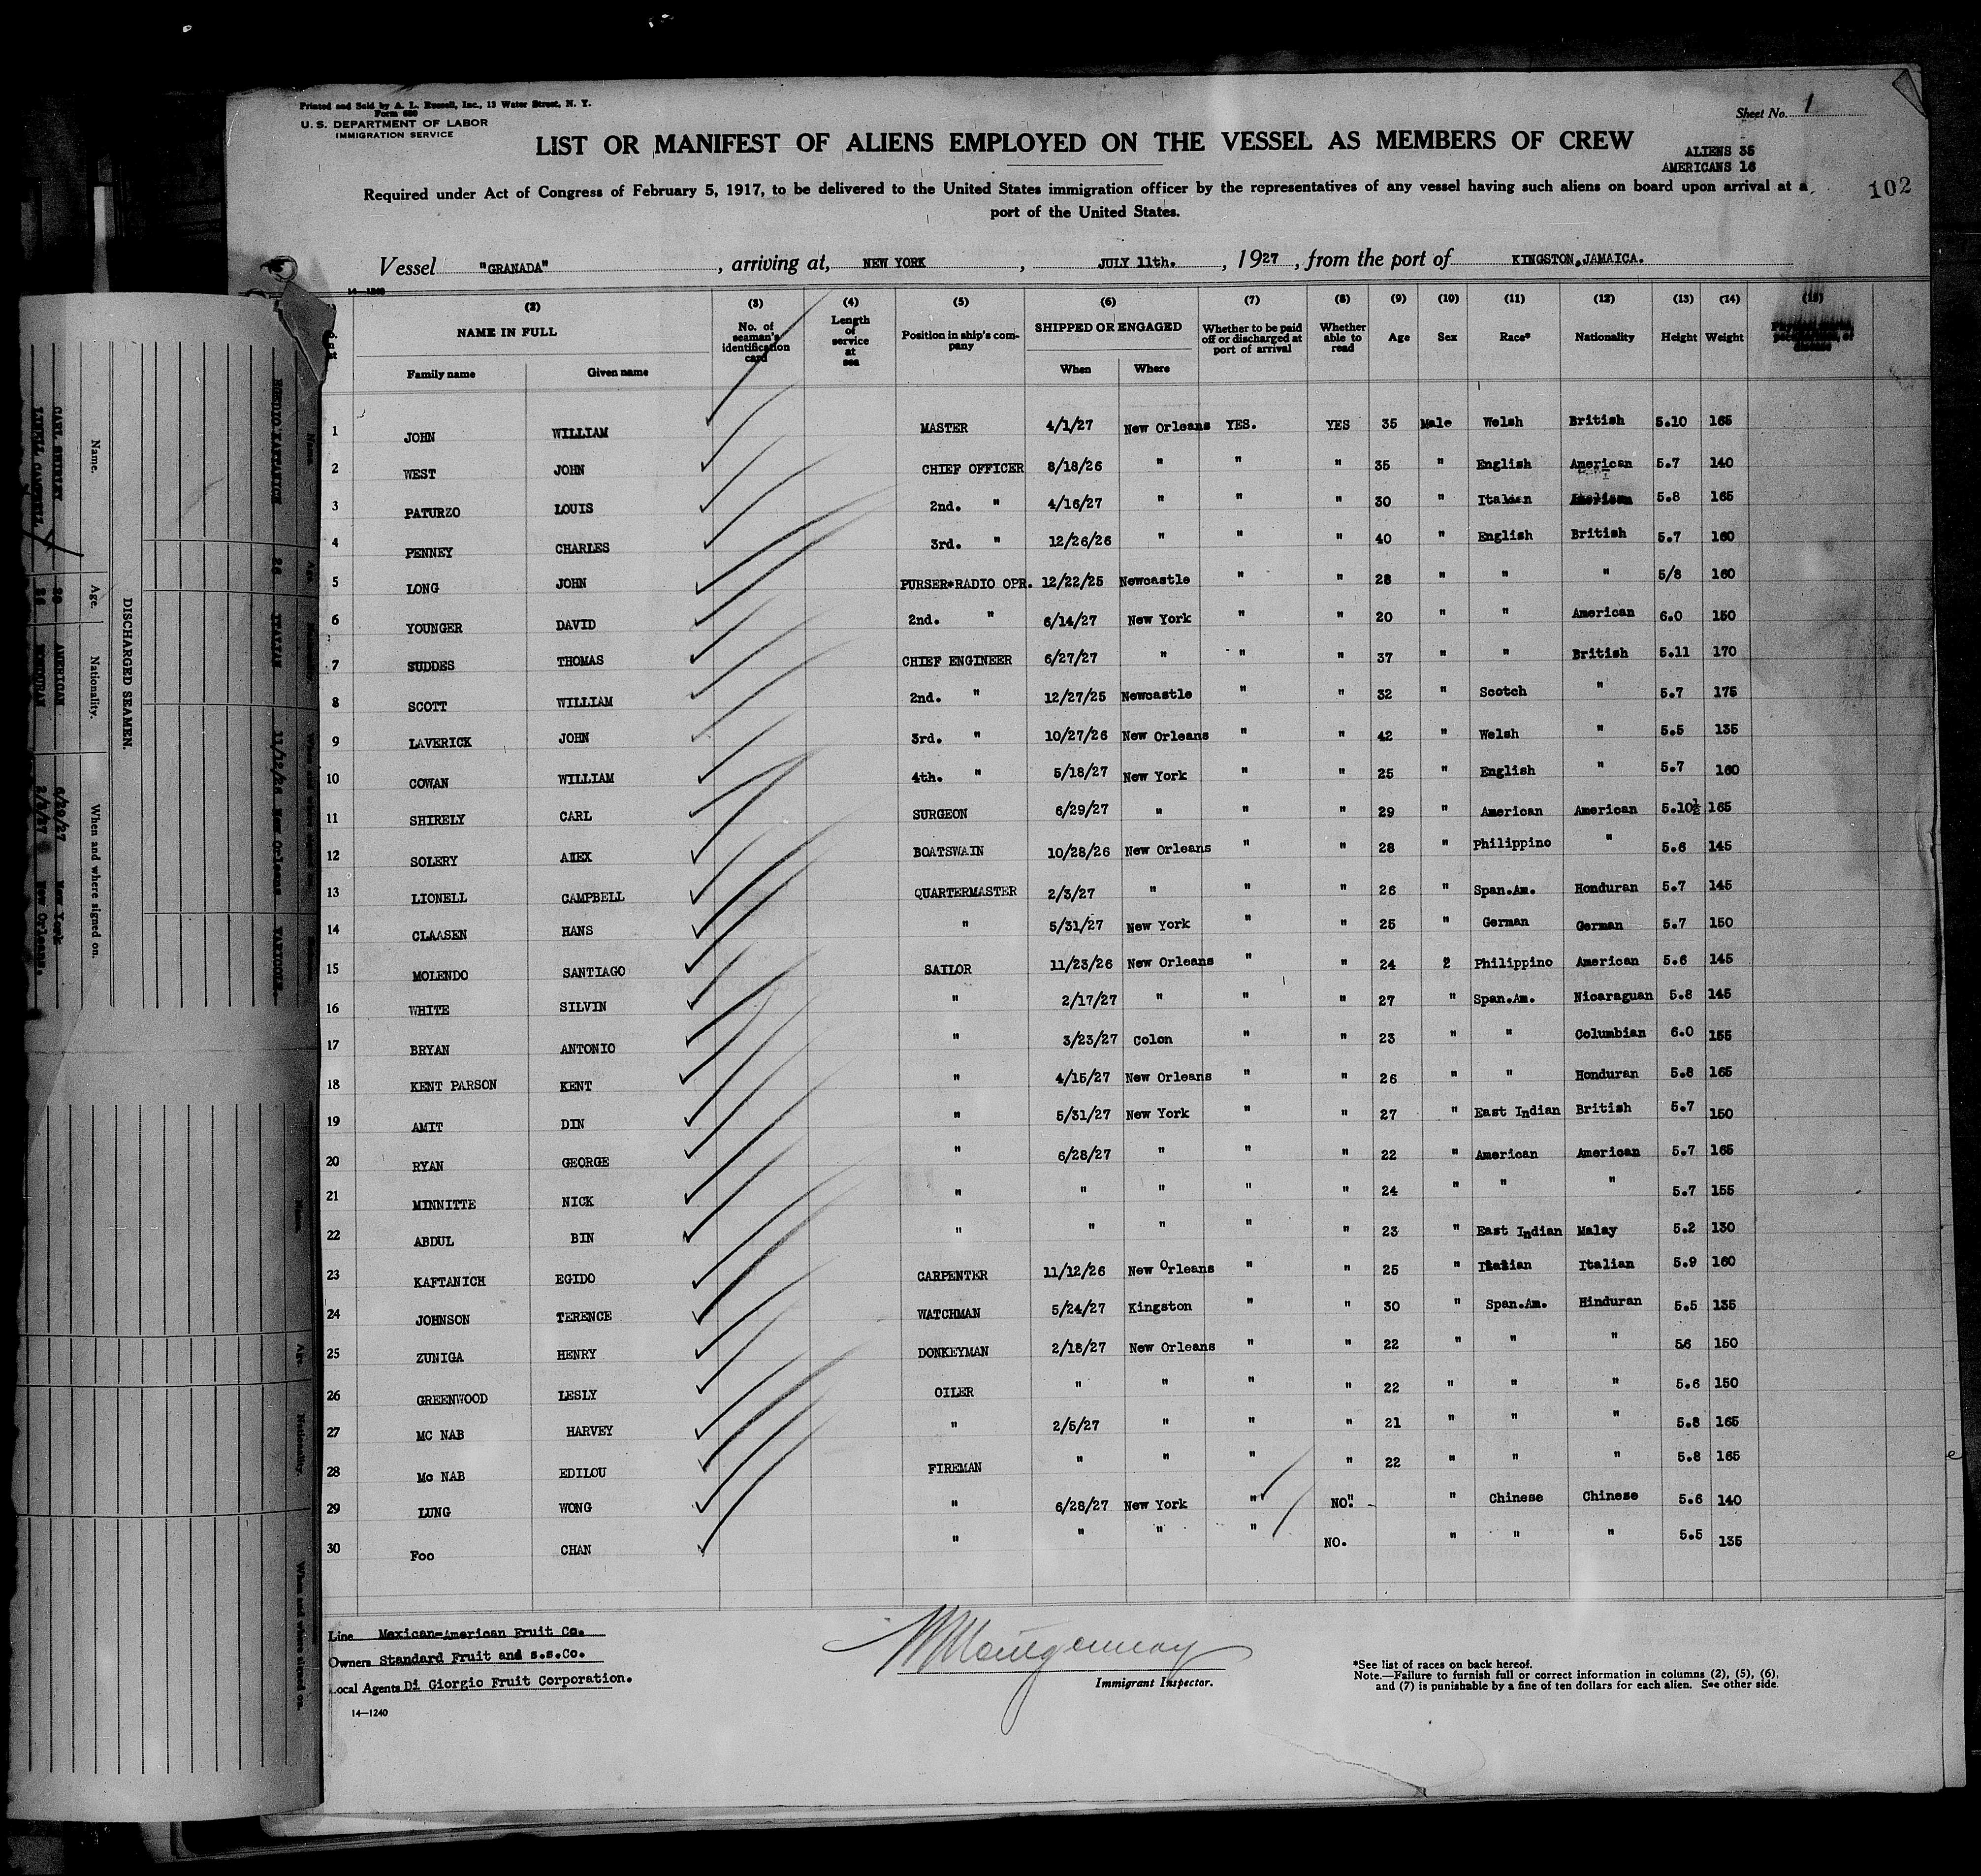 Printed and Sold by A. L. Russell, Inc., 13 Water Street, N. Y.
Form 680
U. S. DEPARTMENT OF LABOR
IMMIGRATION SERVICE
Sheet No. 1
LIST OR MANIFEST OF ALIENS EMPLOYED ON THE VESSEL AS MEMBERS OF CREW
ALIENS 35
AMERICANS 16
102
Required under Act of Congress of February 5, 1917, to be delivered to the United States immigration officer by the representatives of any vessel having such aliens on board upon arrival at a
port of the United States.
Vessel "GRANADA", arriving at, NEW YORK, JULY 11th., 1927, from the port of KINGSTON,JAMAICA.
14—1240
(2) (3) (4) (5) (6) (7) (8) (9) (10) (11) (12) (13) (14) (15)
NAME IN FULL No. of seaman's identification card Length of service at sea Position in ship's company SHIPPED OR ENGAGED Whether to be paid off or discharged at port of arrival Whether able to read Age Sex Race* Nationality Height Weight
Family name Given name When Where
1 JOHN WILLIAM MASTER 4/1/27 New Orleans YES. YES 35 Male Welsh British 5.10 165
2 WEST JOHN CHIEF OFFICER 8/18/26 " " " 35 " English American 5.7 140
3 PATURZO LOUIS 2nd. " 4/16/27 " " " 30 " Italian 5.8 165
4 PENNEY CHARLES 3rd. " 12/26/26 " " " 40 " English British 5.7 160
5 LONG JOHN PURSER*RADIO OPR. 12/22/25 Newcastle " " 28 " " " 5/8 160
6 YOUNGER DAVID 2nd. " 6/14/27 New York " " 20 " " American 6.0 150
7 SUDDES THOMAS CHIEF ENGINEER 6/27/27 " " " 37 " " British 5.11 170
8 SCOTT WILLIAM 2nd. " 12/27/25 Newcastle " " 32 " Scotch " 5.7 175
9 LAVERICK JOHN 3rd. " 10/27/26 New Orleans " " 42 " Welsh " 5.5 135
10 COWAN WILLIAM 4th. " 5/18/27 New York " " 25 " English " 5.7 160
11 SHIRELY CARL SURGEON 6/29/27 " " " 29 " American American 5.10½ 165
12 SOLERY ALEX BOATSWAIN 10/28/26 New Orleans " " 28 " Philippino " 5.6 145
13 LIONELL CAMPBELL QUARTERMASTER 2/3/27 " " " 26 " Span.Am. Honduran 5.7 145
14 CLAASEN HANS " 5/31/27 New York " " 25 " German German 5.7 150
15 MOLENDO SANTIAGO SAILOR 11/23/26 New Orleans " " 24 2 Philippino American 5.6 145
16 WHITE SILVIN " 2/17/27 " " " 27 " Span.Am. Nicaraguan 5.8 145
17 BRYAN ANTONIO " 3/23/27 Colon " " 23 " " Columbian 6.0 155
18 KENT PARSON KENT " 4/15/27 New Orleans " " 26 " " Honduran 5.8 165
19 AMIT DIN " 5/31/27 New York " " 27 " East Indian British 5.7 150
20 RYAN GEORGE " 6/28/27 " " " 22 " American American 5.7 165
21 MINNITTE NICK " " " " " 24 " " " 5.7 155
22 ABDUL BIN " " " " " 23 " East Indian Malay 5.2 130
23 KAFTANICH EGIDO CARPENTER 11/12/26 New Orleans " " 25 " Italian Italian 5.9 160
24 JOHNSON TERENCE WATCHMAN 5/24/27 Kingston " " 30 " Span.Am. Hinduran 5.5 135
25 ZUNIGA HENRY DONKEYMAN 2/18/27 New Orleans " " 22 " " " 56 150
26 GREENWOOD LESLY OILER " " " " 22 " " " 5.6 150
27 MC NAB HARVEY " 2/5/27 " " " 21 " " " 5.8 165
28 Mc NAB EDILOU FIREMAN " " " " 22 " " " 5.8 165
29 LUNG WONG " 6/28/27 New York " NO." " Chinese Chinese 5.6 140
30 Foo CHAN " " " " NO. " " " 5.5 135
Line Mexican-American Fruit Co.
Owners Standard Fruit and s.s.Co.
Local Agents Di Giorgio Fruit Corporation.
14—1240
Montgomery
Immigrant Inspector.
*See list of races on back hereof.
Note.—Failure to furnish full or correct information in columns (2), (5), (6),
and (7) is punishable by a fine of ten dollars for each alien. See other side.
DISCHARGED SEAMEN.
Name. Age. Nationality. When and where signed on.
CARL SHIRLEY 29 AMERICAN 6/29/27 New York
LIONELL CAMPBELL 26 HONDURAN 2/3/27 New Orleans.
Name. Age. Nationality. When and where signed on.